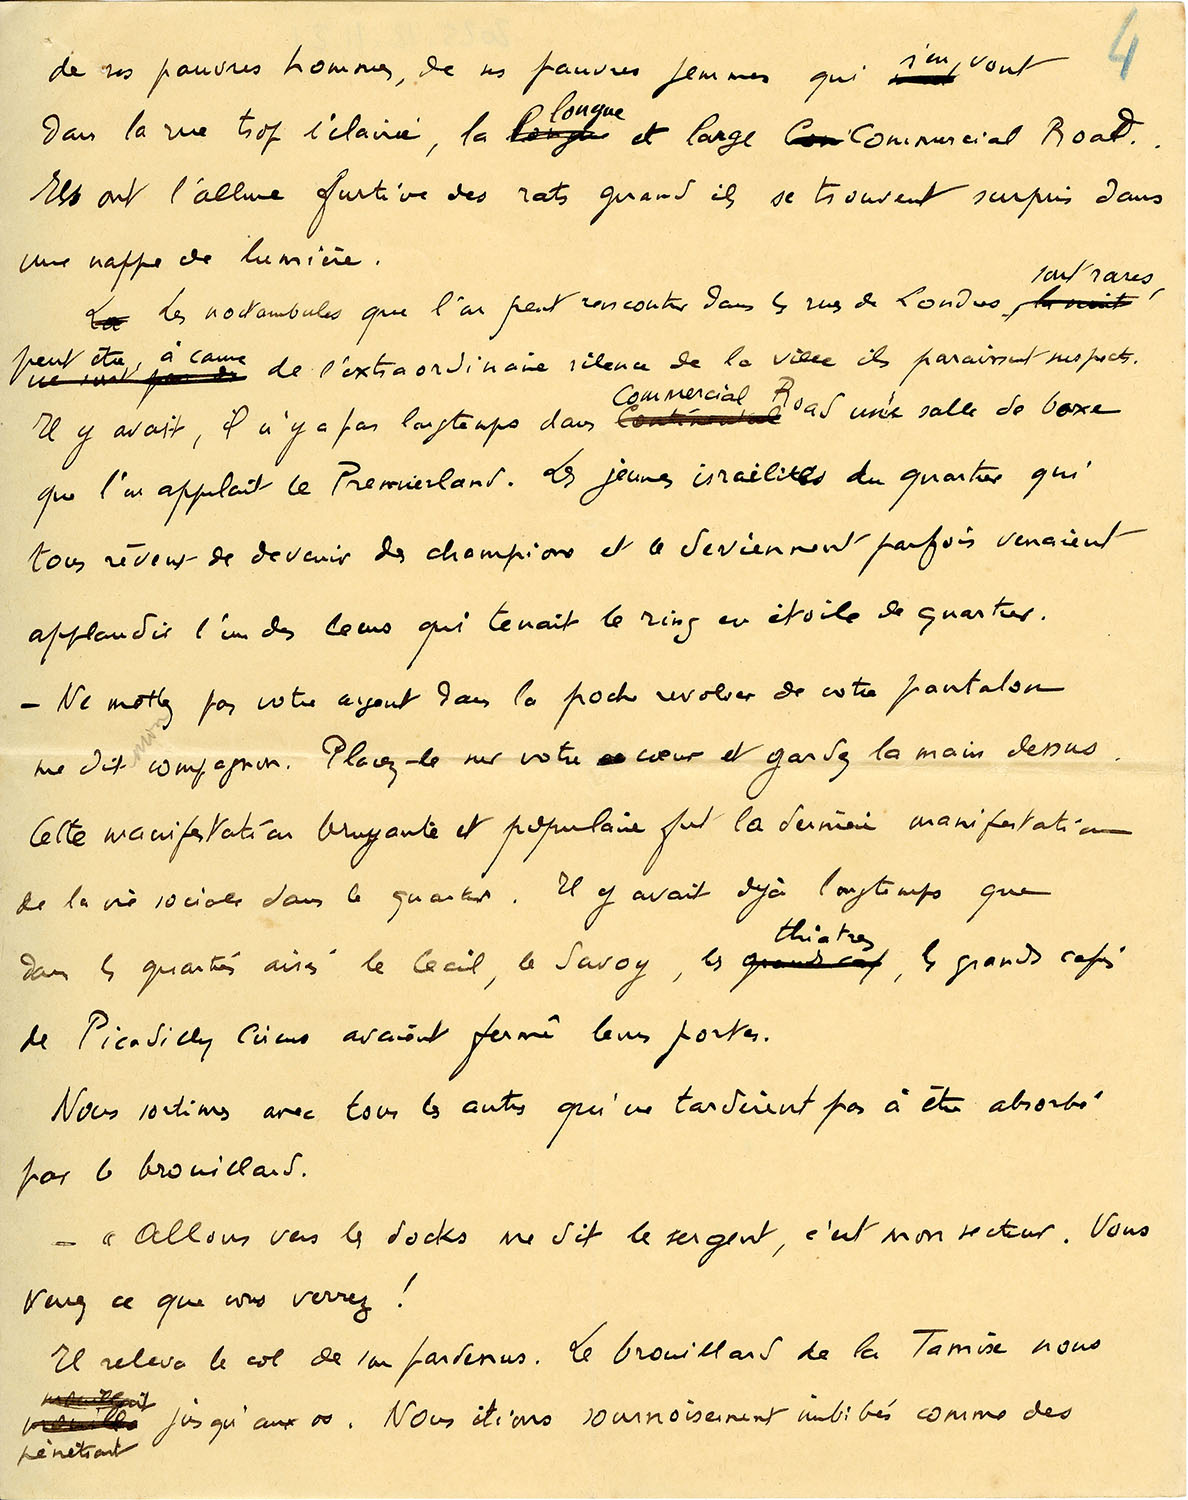 4
de ces pauvres hommes, de ces pauvres femmes qui s'en vont
dans la rue trop éclairée, la longue longue et large Com Commercial Road..
Ils ont l'allure furtive des rats quand ils se trouvent surpris dans
une nappe de lumière.
La Les noctambules que l'on peut rencontrer dans les rues de Londres, la nuit sont rares,
ne sont pas de peut être, à cause de l'extraordinaire silence de la ville ils paraissent suspects.
Il y avait, il n'y a pas longtemps dans Continental Commercial Road une salle de boxe
que l'on appelait le Premierland. Les jeunes israélites du quartier qui
tous rêvent de devenir des champions et le deviennent parfois venaient
applaudir l'un des leurs qui tenait le ring en étoile de quartier.
– Ne mettez pas votre argent dans la poche revolver de votre pantalon
me dit mon compagnon. Placez-le sur votre cœur et gardez la main dessus.
Cette manifestation bruyante et populaire fut la dernière manifestation
de la vie sociale dans le quartier. Il y avait déjà longtemps que
dans les quartiers aisés le Cecil, le Savoy, les grands caf théatres, les grands cafés
de Picadilly Circus avaient fermé leurs portes.
Nous sortimes avec tous les autres qui ne tardèrent pas à être absorbés
par le brouillard.
– « Allons vers les docks me dit le sergent, c'est mon secteur. Vous
verrez ce que vous verrez !
Il releva le col de son pardessus. Le brouillard de la Tamise nous
mouillait
mouilla jusqu'aux os. Nous étions sournoisement imbibés comme des
pénétrait